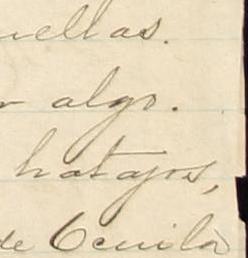 uellas.
r algo.
hatajos,
de Cecilio